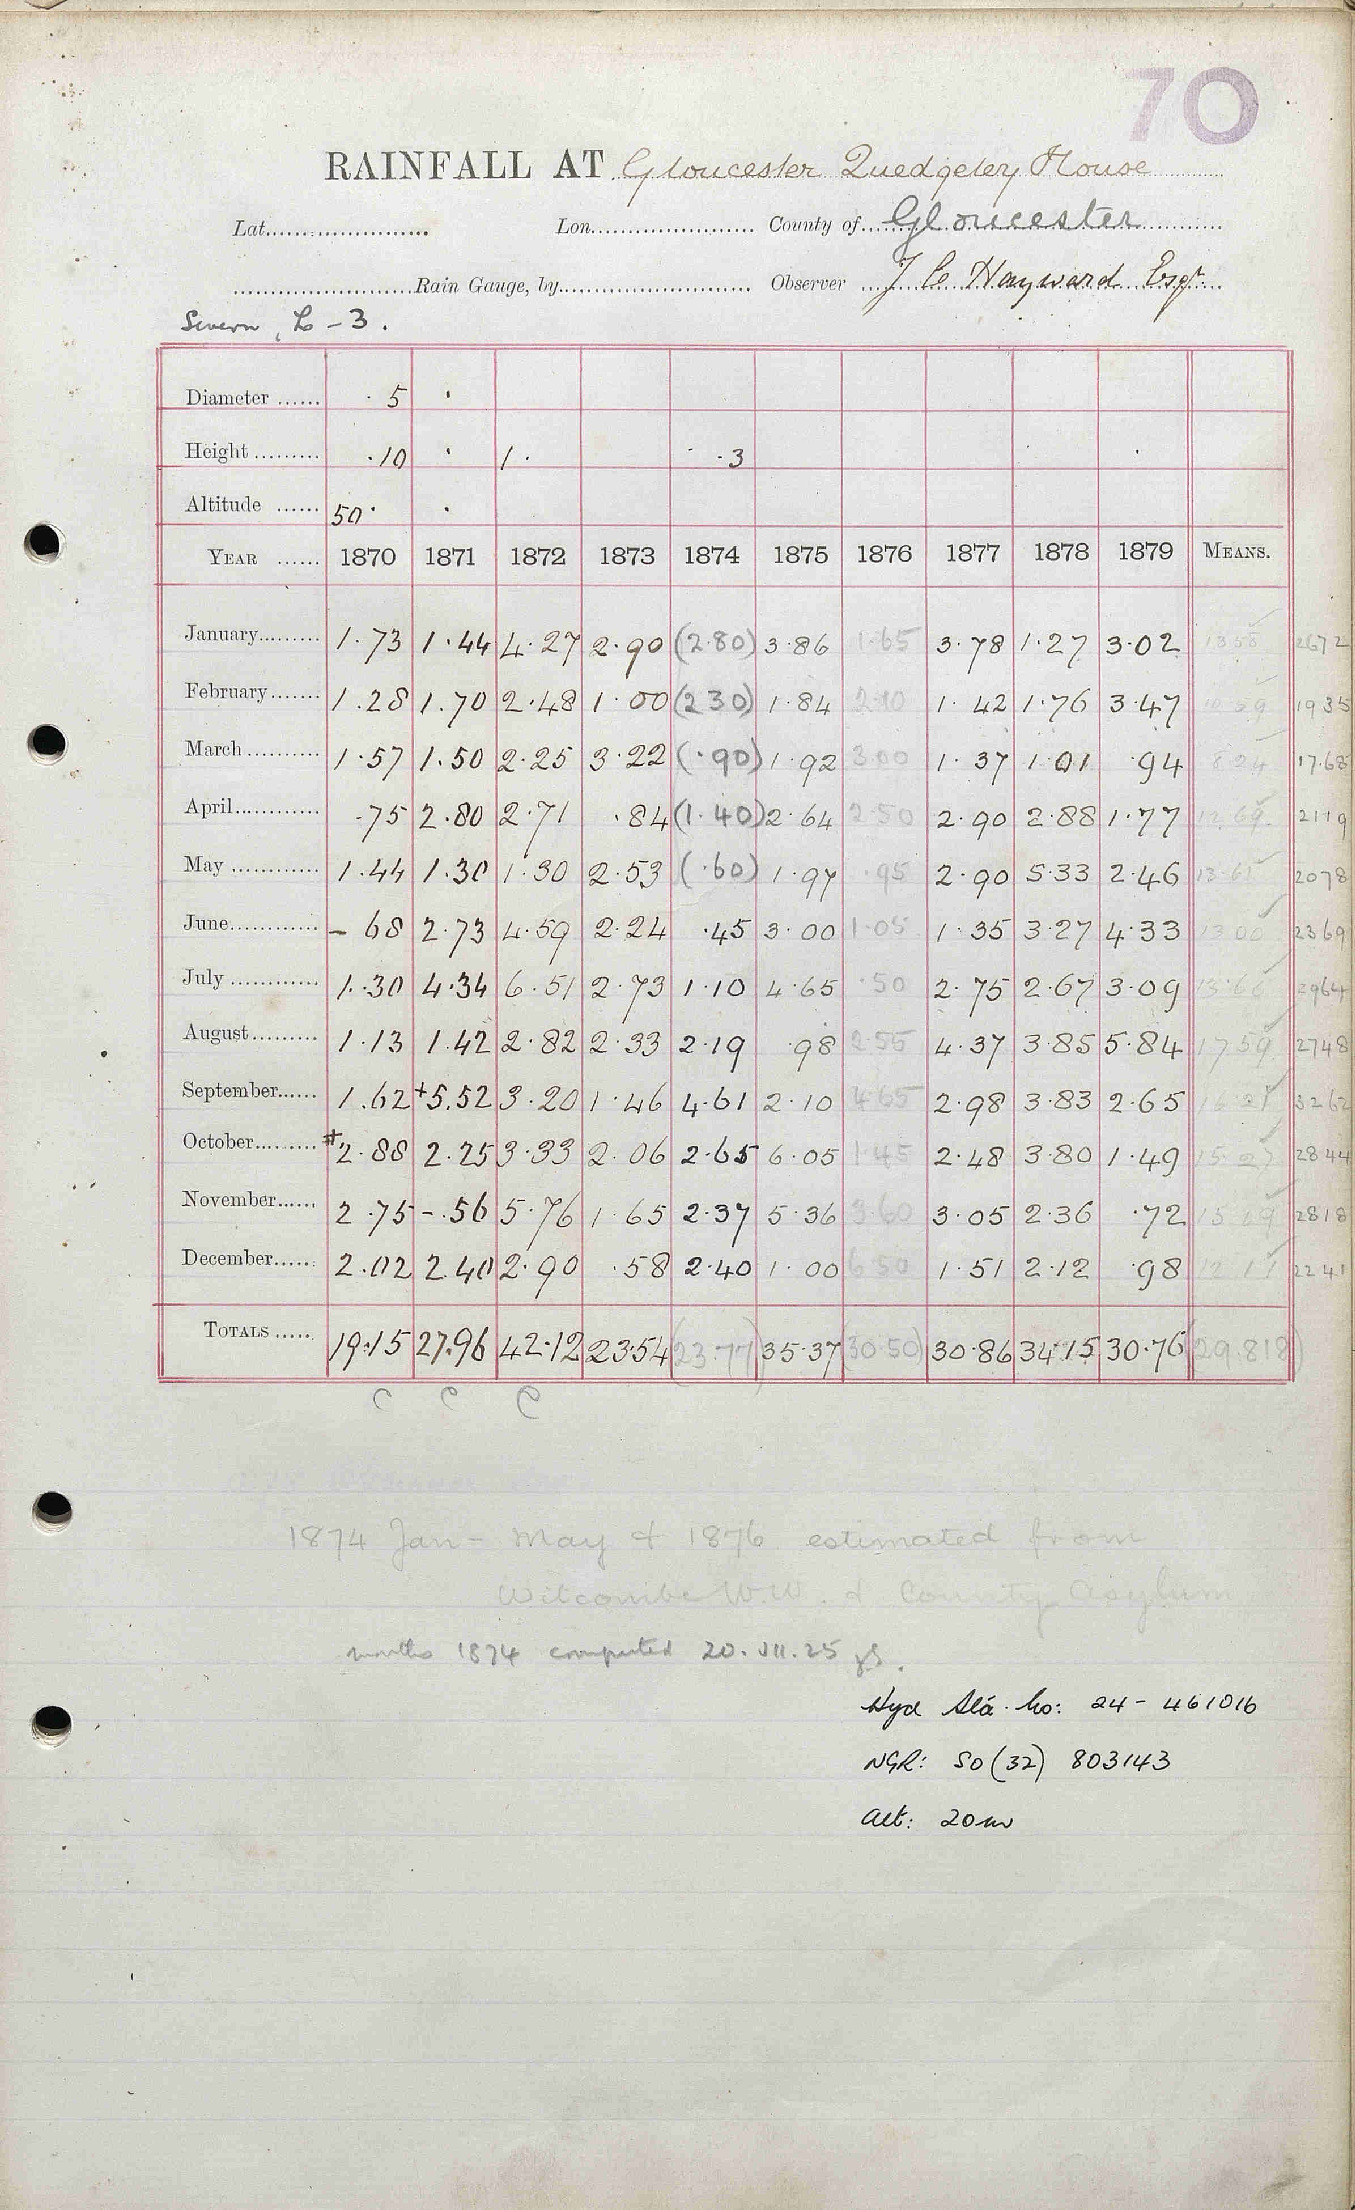 70
RAINFALL AT Gloucester Quedgeley House
Lat. Lon. County of Gloucester
Rain Gauge, by Observer J C Hayward Esqr
Severn, L - 3.
Diameter ...... · 5 ·
Height ......... ·10 · 1· ·3
Altitude ...... 50· ·
YEAR ...... 1870 1871 1872 1873 1874 1875 1876 1877 1878 1879 MEANS.
January......... 1·73 1·44 4·27 2·90 (2·80) 3·86 1·65 3·78 1·27 3·02 2672
February....... 1.28 1.70 2·48 1·00 (230) 1·84 2·10 1·42 1·76 3·47 1935
March .......... 1·57 1.50 2·25 3·22 (·90) 1·92 3·00 1·37 1·01 ·94 8 24 17·68
April............ ·75 2.80 2·71 ·84 (1·40) 2·64 2·50 2·90 2·88 1·77 12.69 2119
May ............ 1·44 1.30 1·30 2·53 (·60) 1·97 ·95 2·90 5·33 2·46 2078
June............ - 68 2.73 4·59 2·24 ·45 3·00 1·05 1·35 3·27 4·33 13 00 2369
July ............ 1.·30 4·34 6·51 2·73 1·10 4·65 ·50 2·75 2·67 3·09 13·66 2964
August......... 1·13 1.42 2·82 2·33 2·19 ·98 2·55 4·37 3·85 5·84 17 59 2748
September...... 1.62 +5.52 3·20 1·46 4·61 2·10 4·65 2·98 3·83 2·65 3262
October......... #2·88 2.25 3·33 2·06 2·65 6·05 1·45 2·48 3·80 1·49 15 27 2844
November...... 2·75 -.56 5·76 1·65 2·37 5·36 3·60 3·05 2·36 ·72 2818
December...... 2.02 2.40 2·90 ·58 2·40 1·00 6 50 1·51 2·12 ·98 2241
TOTALS ..... 19·15 27.96 42·12 23·54 (23·77) 35·37 (30·50) 30·86 34·15 30·76 (29.818)
C C C
1874 Jan - May & 1876 estimated from
Witcombe W.W. & County Asylum
months 1874 computed 20.VII.25
Hyd Sta. No: 24 - 461016
NGR: SO (32) 803143
Alt: 20m